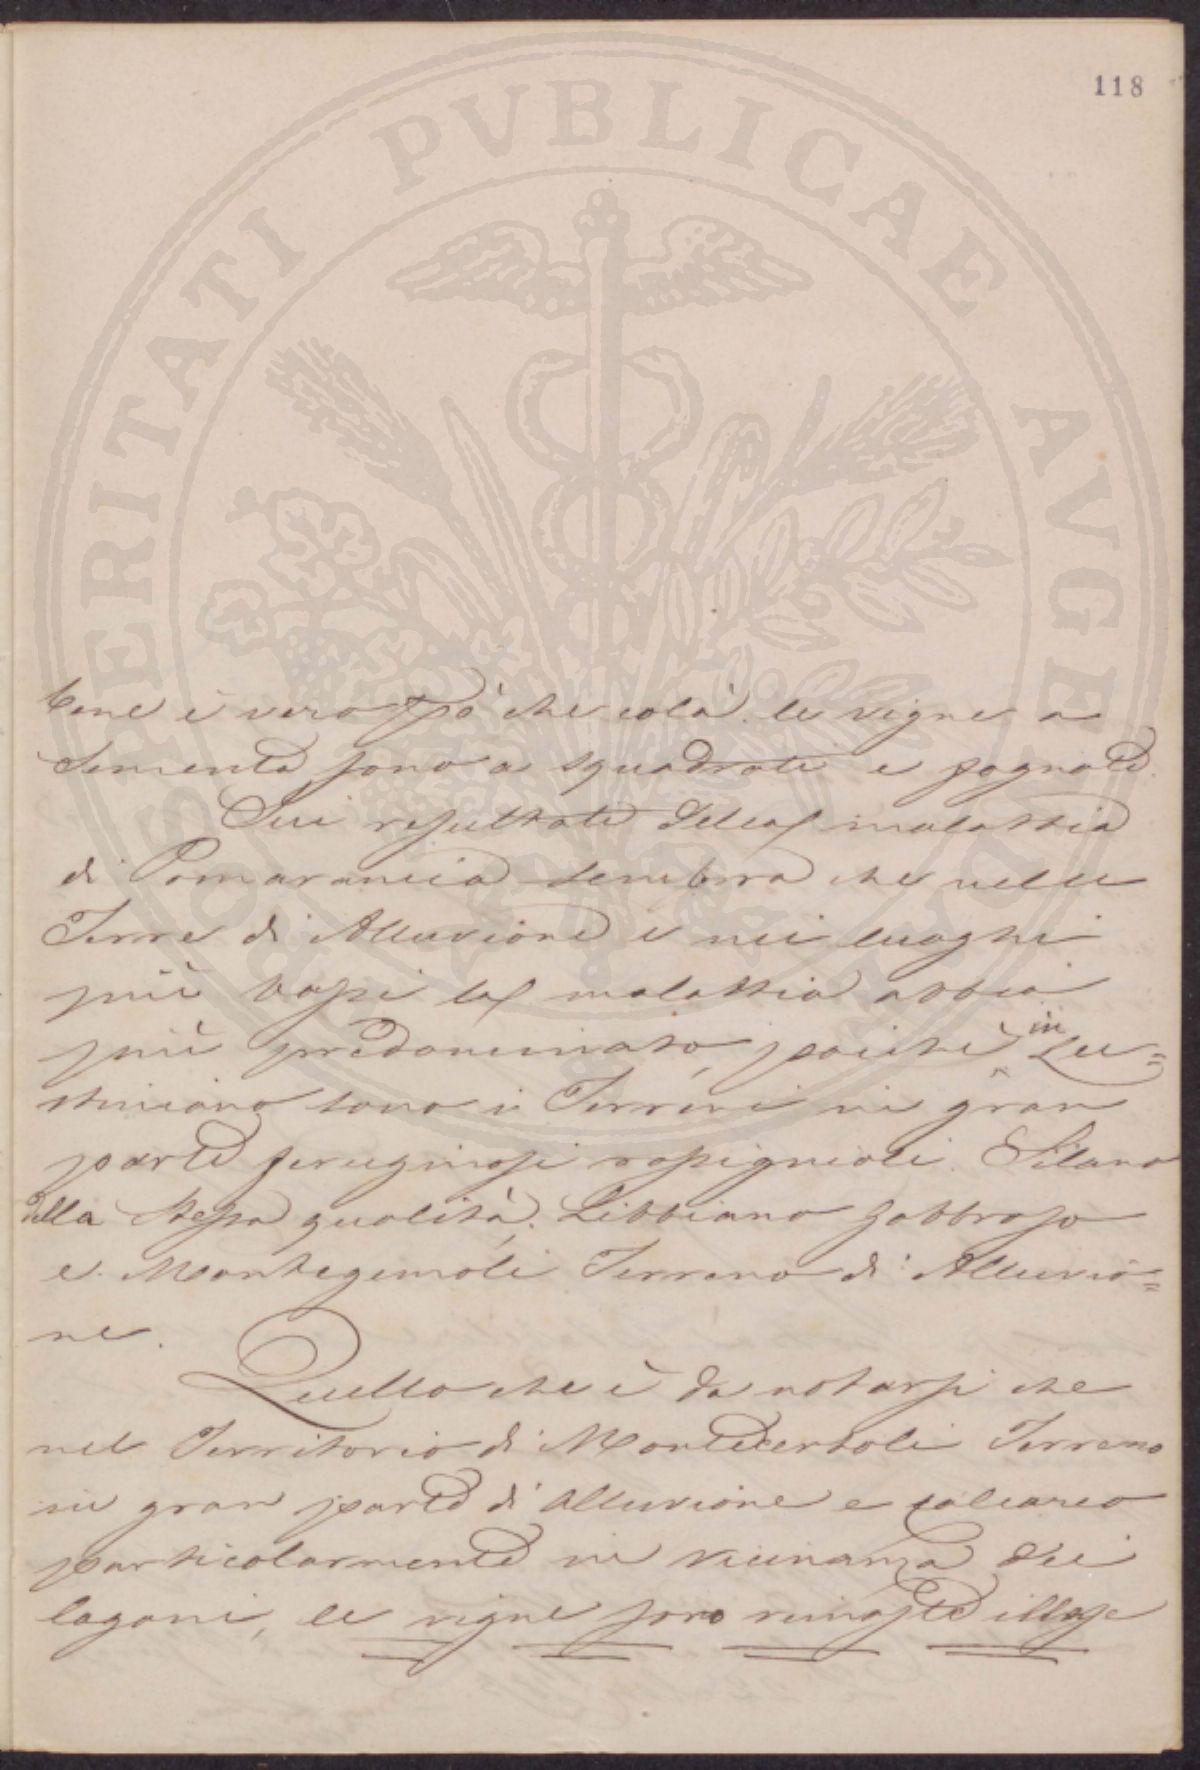 118
PROSPERITATI PVBLICAE AVGENDAE
bene è vero però che colà le vigne a
Sementa sono a squadrati e fognate.
Sui resultati della malattia
di Pomarancia sembra che nelle
Terre di Alluvione e nei luoghi
più bassi la malattia abbia
più predominato, poichè in Lu=
stiniano sono i Terreni in gran
parte feruginosi rossignioli. Silano
della stessa qualità. Libbiano gabbroso
e Montegemoli Terreno di Alluvio=
ne.
Quello che è da notarsi che
nel Territorio di Montecerboli Terreno
in gran parte di alluvione e calcareo
particolarmente in vicinanza dei
lagoni, le vigne sono rimaste illese